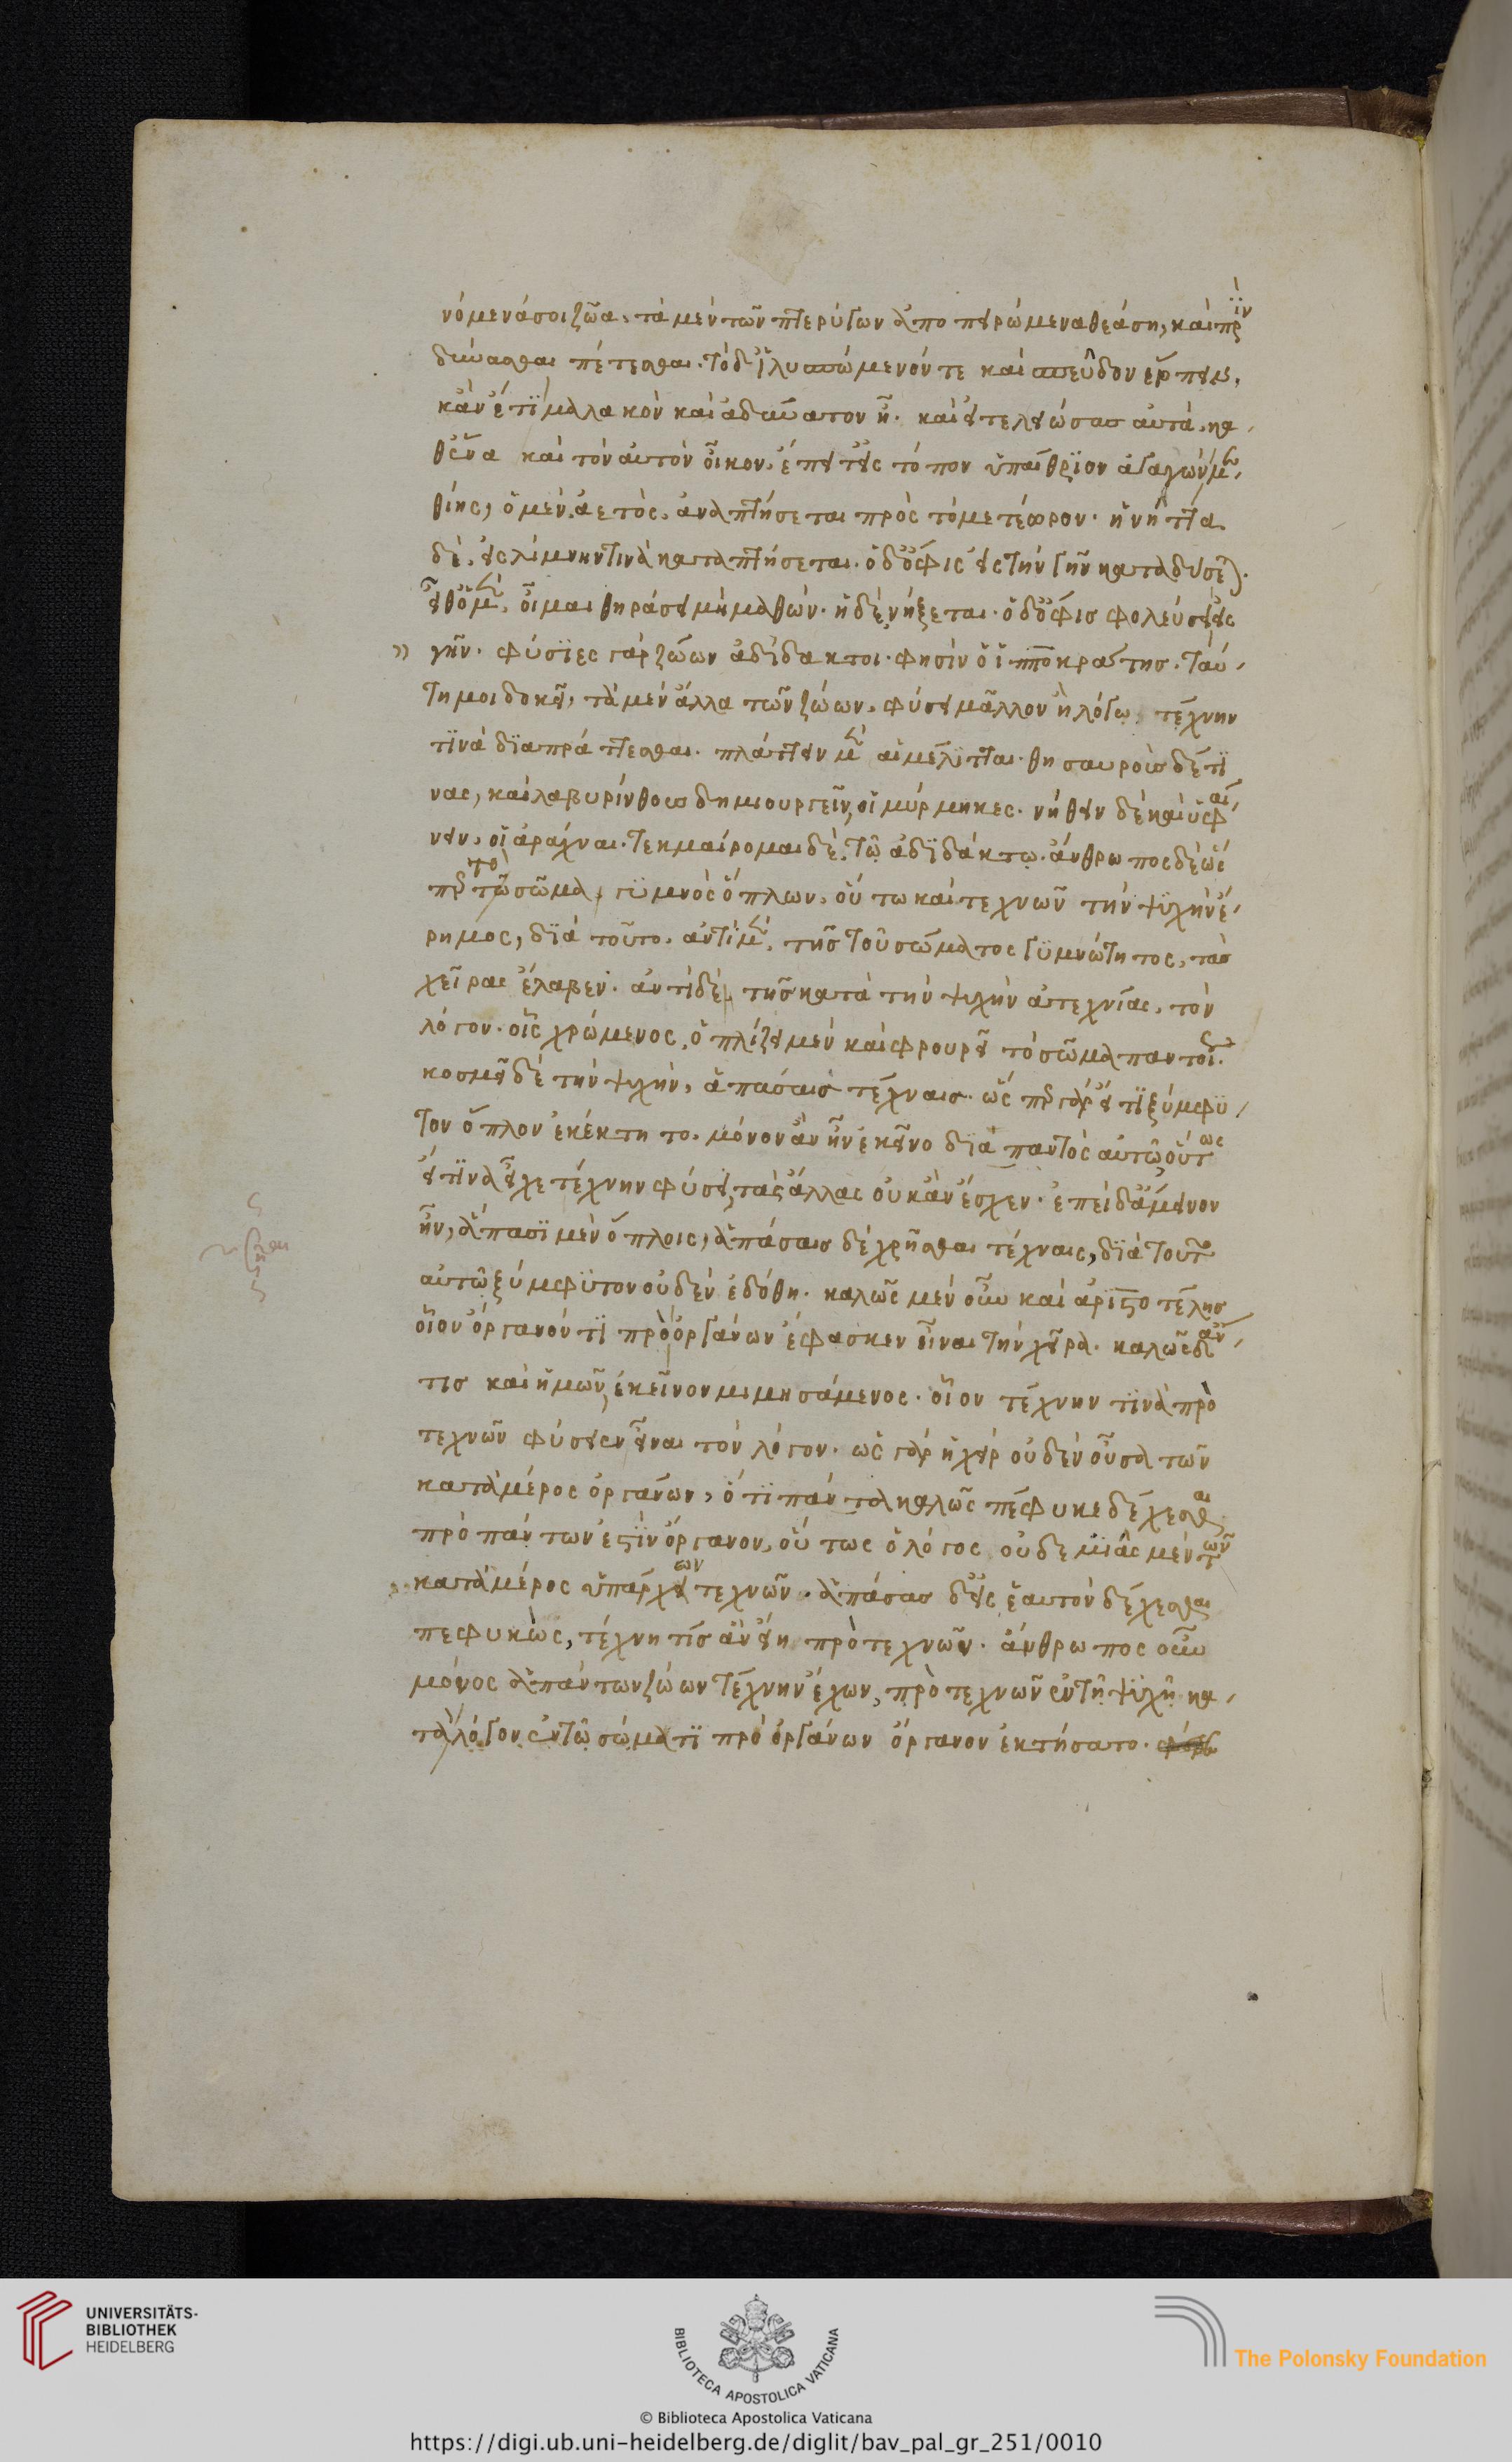 νόμενά σοι ζῶα. τὰ μὲν τῶν πτερύγων ἀποπειρώμενα θεάση, καὶ πρὶν
δύνασθαι πέτεσθαι. τὸ δ' ἰλυσπώμενόν τε καὶ σπεῦδον ἕρπειν,
κἂν ἔτι μαλακὸν καὶ ἀδύνατον ἦ. καὶ εἰ τελειώσας αὐτὰ, κα
θ' ἕνα καὶ τὸν αὐτὸν οἶκον. ἔπειτ' εἰς τόπον ὑπαίθριον ἀγαγὼν με
θίης, ὁ μὲν ἀετὸς, ἀναπτήσεται πρὸς τὸ μετέωρον. ἡ νῆττα
δὲ, εἰς λίμνην τινὰ καταπτήσεται. ὁ δ' ὄφις εἰς τὴν γῆν καταδύσεται.
εἶθ' ὁ μὲν, οἶμαι θηράσει μὴ μαθών. ἡ δὲ νήξεται. ὁ δ' ὄφισ φολεύσει εἰς
γῆν. φύσϊες γὰρ ζώων ἀδίδακτοι. φησὶν ὁ ἱπποκράτησ. ταύ
τη μοι δοκεῖ, τὰ μὲν ἄλλα τῶν ζώων, φύσει μᾶλλον ἢ λόγω, τέχνην
τϊνὰ δϊαπράττεσθαι. πλάττειν μὲν αἱ μέλιτται. θησαυροὺσ δέ τϊ
νας, καὶ λαβυρίνθουσ δημιουργεῖν, οἱ μύρμηκες. νήθειν δὲ καὶ ὑφαί
νειν, οἱ ἀράχναι. τεκμαίρομαι δὲ, τῶ ἀδϊδάκτω. ἄνθρωπος δὲ ὥσ
περ τὸ σῶμα, γϋμνὸς ὅπλων, οὕτω καὶ τεχνῶν τὴν ψϋχὴν ἔ
ρημος, δϊὰ τοῦτο, ἀντὶ μὲν, τῆσ τοῦ σώματος γϋμνώτητος, τὰσ
χεῖρας ἔλαβεν. ἀντὶ δὲ, τῆσ κατὰ τὴν ψυχὴν ἀτεχνίας, τὸν
λόγον. οἷς χρώμενος, ὁπλίζει μὲν καὶ φρουρεῖ τὸ σῶμα παντοίως.
κοσμεῖ δὲ τὴν ψυχὴν, ἁπάσαισ τέχναισ. ὥσπερ γὰρ εἴ τϊ ξύμφϋ
τον ὅπλον ἐκέκτητο, μόνον ἂν ἦν ἐκεῖνο δϊὰ παντὸς αὐτῶ, οὕτως
εἴ τϊνα εἶχε τέχνην φύσει, τὰς ἄλλας οὐκ ἂν ἔσχεν. ἐπεὶ δ' ἄμεινον
ἦν, ἅπασϊ μὲν ὅπλοις, ἁπάσαισ δὲ χρῆσθαι τέχναις, δϊὰ τοῦτο
αὐτῶ ξύμφϋτον οὐδὲν ἐδόθη. καλῶς μὲν οὖν καὶ ἀριστοτέλησ
οἷον ὄργανόν τϊ πρὸ ὀργάνων ἔφασκεν εἶναι τὴν χεῖρα. καλῶς δ' ἄν
τισ καὶ ἡμῶν, ἐκεῖνον μιμησάμενος. οἷον τέχνην τϊνὰ πρὸ
τεχνῶν φύσειεν εἶναι τὸν λόγον. ὡς γὰρ ἡ χεὶρ οὐδὲν οὖσα τῶν
κατὰ μέρος ὀργάνων, ὅτϊ πάντα καλῶς πέφυκε δέχεσθαι
πρὸ πάντων ἐστὶν ὄργανον, οὕτως ὁ λόγος οὐδεμϊᾶς μὲν τῶν
κατὰ μέρος ὑπάρχων τεχνῶν. ἁπάσασ δ' εἰς ἑαυτὸν δέχεσθαι
πεφυκὼς, τέχνη τίσ ἂν εἴη πρὸ τεχνῶν. ἄνθρωπος οὖν
μόνος ἁπάντων ζώων τέχνην ἔχων, πρὸ τεχνῶν ἐν τῆ ψϋχῆ κα
τὰ λόγον ἐν τῶ σώματϊ πρὸ ὀργάνων ὄργανον ἐκτήσατο.
UNIVERSITÄTS-
BIBLIOTHEK
HEIDELBERG
BIBLIOTECA APOSTOLICA VATICANA
The Polonsky Foundation
© Biblioteca Apostolica Vaticana
https://digi.ub.uni-heidelberg.de/diglit/bav_pal_gr_251/0010